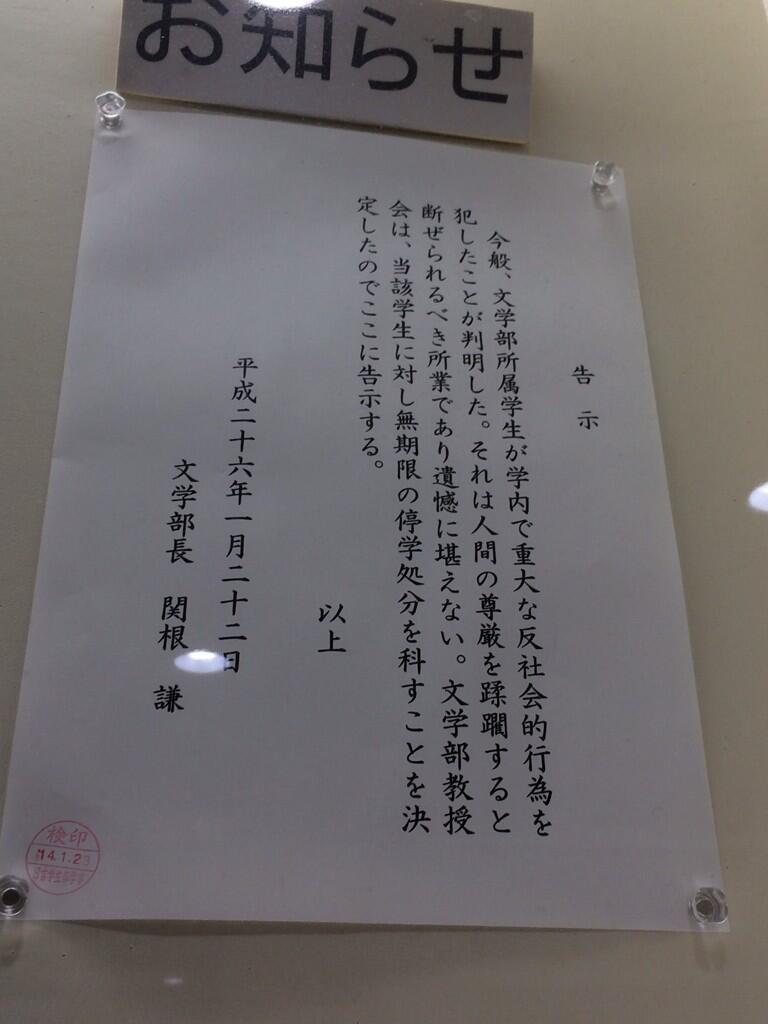 お知らせ
告示
今般、文学部所属学生が学内で重大な反社会的行為を
犯したことが判明した。それは人間の尊厳を蹂躙すると
断ぜられるべき所業であり遺憾に堪えない。文学部教授
会は、当該学生に対し無期限の停学処分を科すことを決
定したのでここに告示する。
以上
平成二十六年一月二十二日
文学部長 関根 謙
検印
14.1.23